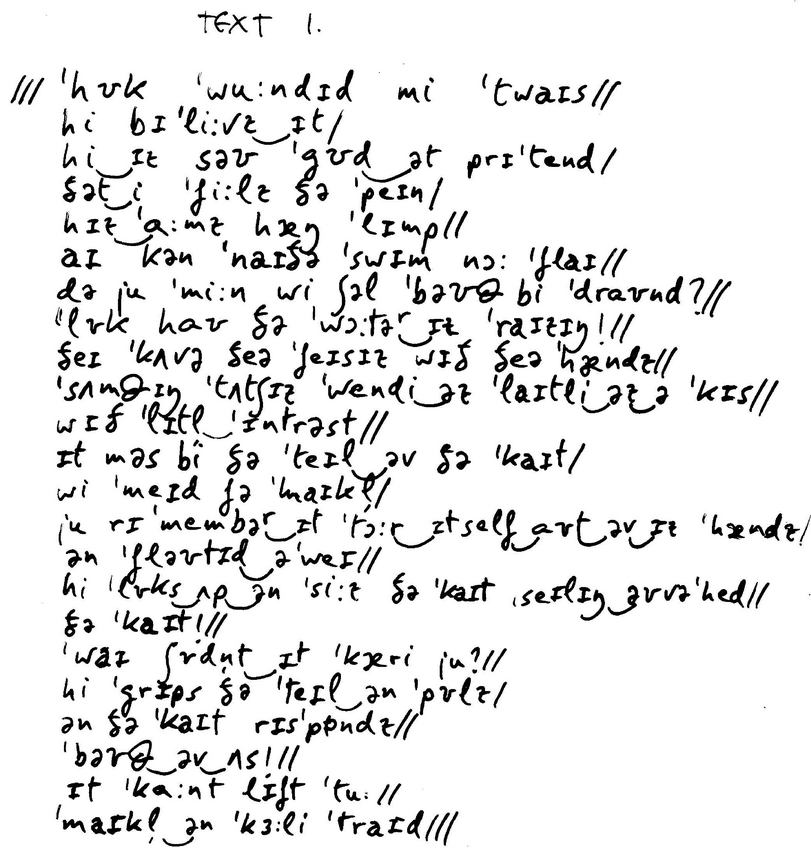 TEXT 1.
/// ˈhʊk ˈwuːndɪd mi ˈtwaɪs//
hi bɪˈliːvz‿ɪt/
hi‿ɪz səʊ ˈgʊd‿ət prɪˈtend/
ðət‿i ˈfiːlz ðə ˈpeɪn/
hɪz‿ˈɑːmz hæŋ ˈlɪmp//
aɪ kən ˈnaɪðə ˈswɪm nɔː ˈflaɪ//
də ju ˈmiːn wi ʃəl ˈbəʊθ bi ˈdraʊnd?//
ˈlʊk haʊ ðə ˈwɔːtər‿ɪz ˈraɪzɪŋ!//
ðeɪ ˈkʌvə ðeə ˈfeɪsɪz wɪð ðeə ˈhændz//
ˈsʌmθɪŋ ˈtʌtʃɪz ˈwendi‿əz ˈlaɪtli‿əz‿ə ˈkɪs//
wɪð ˈlɪtl‿ˈɪntrəst//
ɪt məs bi ðə ˈteɪl‿əv ðə ˈkaɪt/
wi ˈmeɪd fə ˈmaɪkl̩/
ju rɪˈmembər‿ɪt ˈtɔːr‿ɪtself‿aʊt‿əv‿ɪz ˈhændz/
ən ˈfləʊtɪd‿əˈweɪ//
hi ˈlʊks‿ʌp‿ən ˈsiːz ðə ˈkaɪt ˌseɪlɪŋ‿əʊvəˈhed//
ðə ˈkaɪt!//
ˈwaɪ ʃʊdn̩t‿ɪt ˈkæri ju?//
hi ˈgrɪps ðə ˈteɪl‿ən ˈpʊlz/
ən ðə ˈkaɪt rɪsˈpɒndz//
ˈbəʊθ‿əv‿ʌs!//
ɪt ˈkɑːnt lɪft ˈtuː//
ˈmaɪkl̩‿ən ˈkɜːli ˈtraɪd///